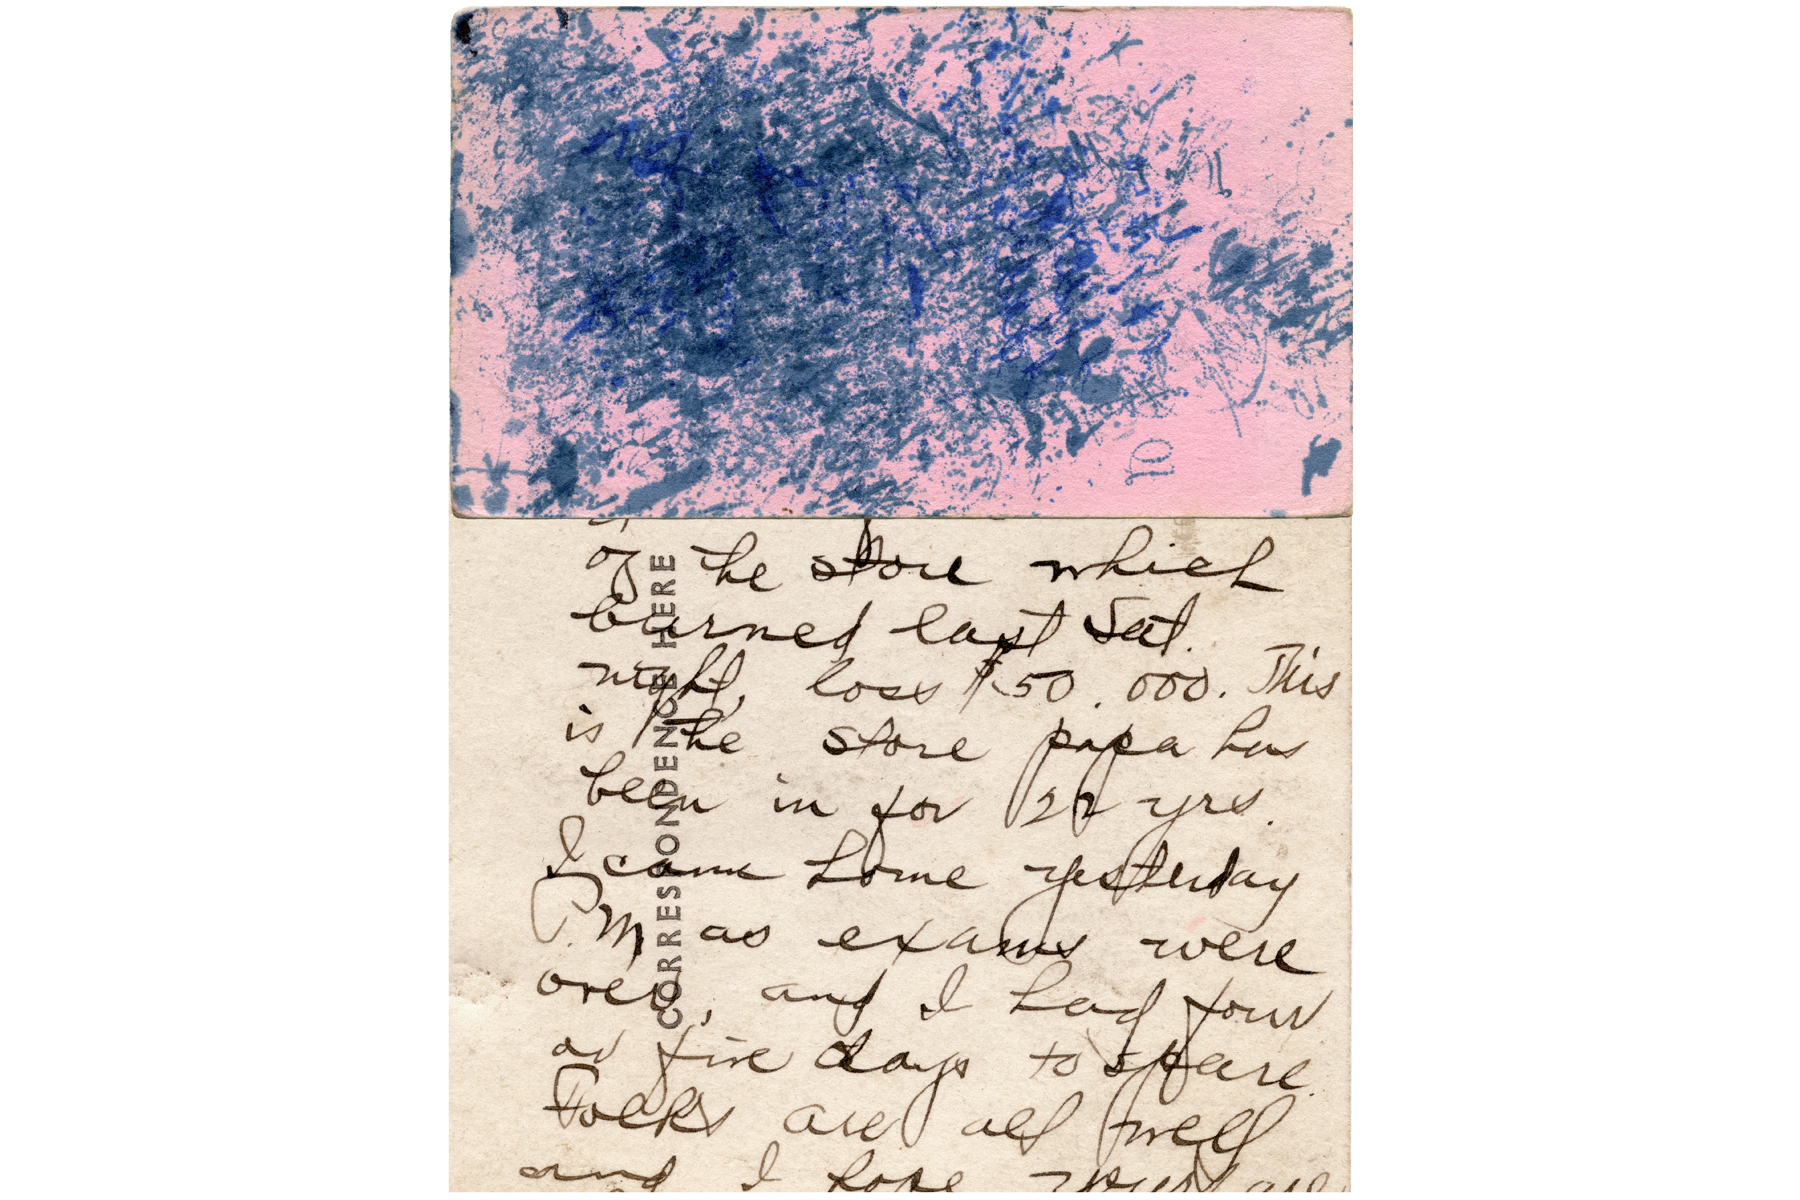 of the store which
burned last Sat.
night, loss $50,000. This
is the store papa has
been in for 22 yrs.
I came home yesterday
P.M as exams were
over, and I had four
or five days to spare.
Folks are all well
and I hope you are
CORRESPONDENCE HERE